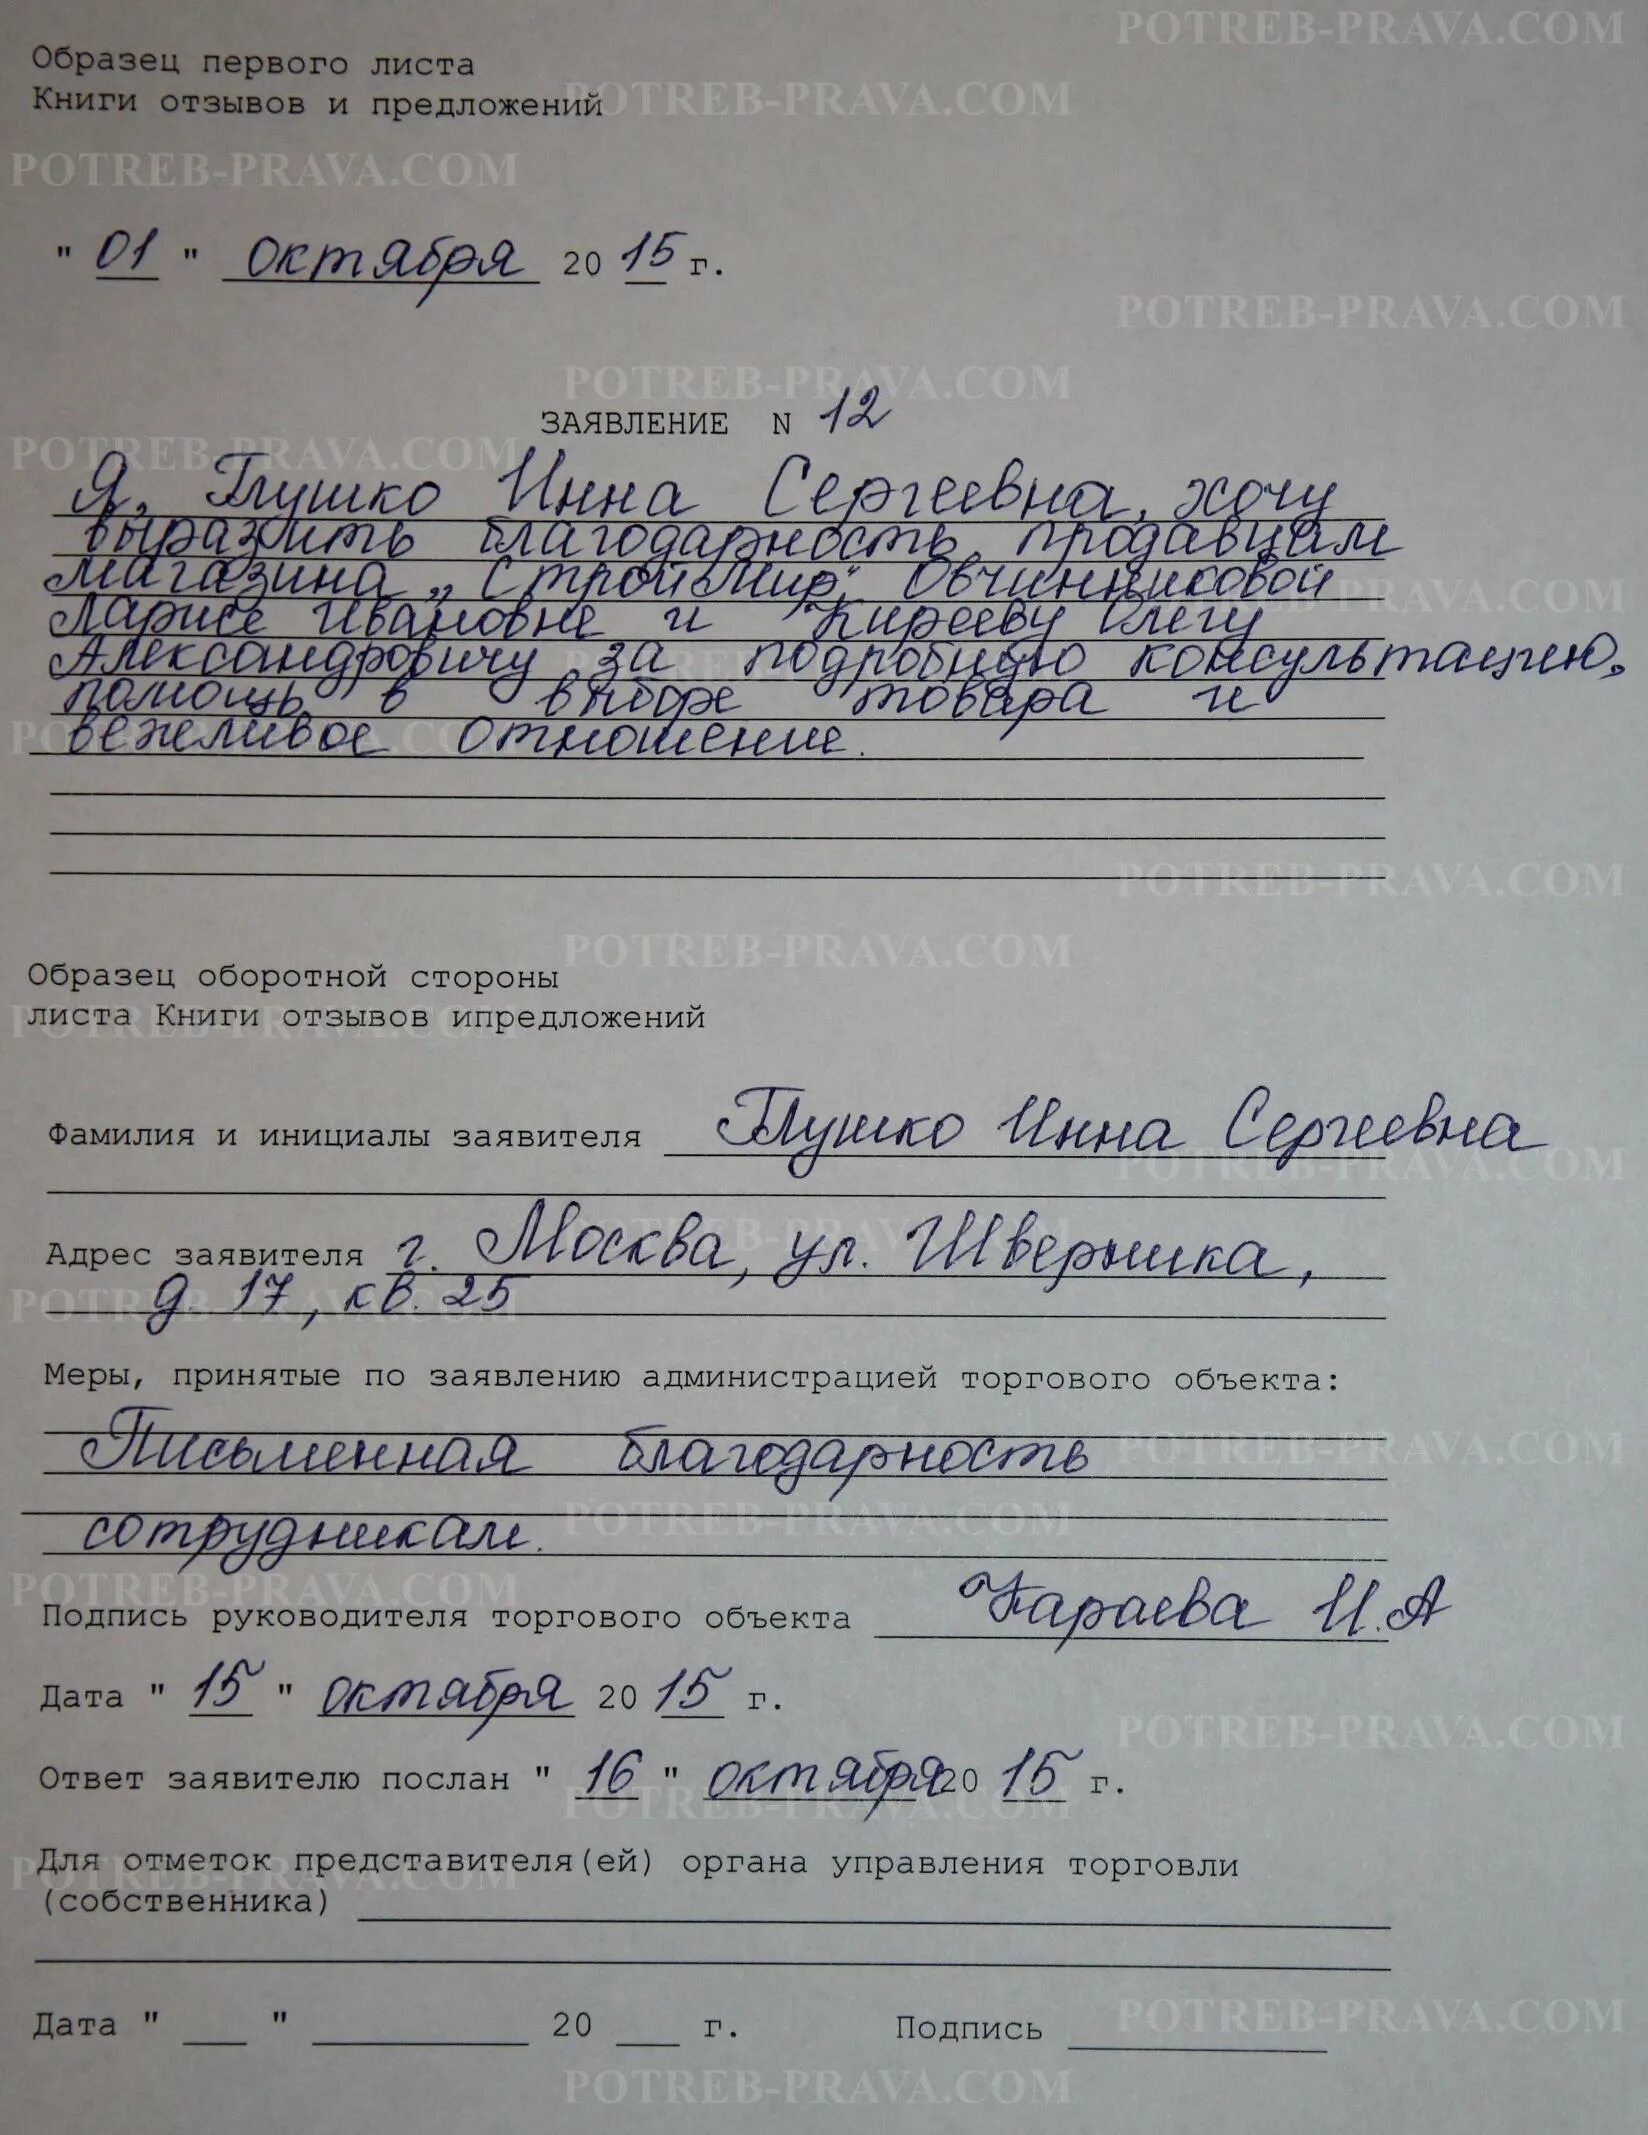 Образец первого листа
Книги отзывов и предложений
" 01 " октября 20 15 г.
ЗАЯВЛЕНИЕ N 12
Я, Глушко Инна Сергеевна, хочу
выразить благодарность продавцам
магазина „СтройМир" Овчинниковой
Ларисе Ивановне и Кирееву Олегу
Александровичу за подробную консультацию,
помощь в выборе товара и
вежливое отношение.
Образец оборотной стороны
листа Книги отзывов ипредложений
Фамилия и инициалы заявителя Глушко Инна Сергеевна
Адрес заявителя г. Москва, ул. Шверника,
д. 17, кв. 25
Меры, принятые по заявлению администрацией торгового объекта:
Письменная благодарность
сотрудникам.
Подпись руководителя торгового объекта Караева И.А
Дата " 15 " октября 20 15 г.
Ответ заявителю послан " 16 " октября 20 15 г.
Для отметок представителя(ей) органа управления торговли
(собственника)
Дата " ___ " ________ 20 ___ г. Подпись ________
POTREB-PRAVA.COM